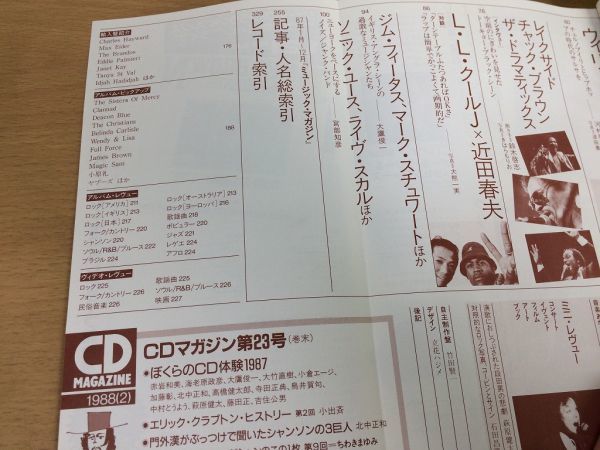 76
ウィ
レイクサイド
チャック・ブラウン
ザ・ドラマティックス
インタヴュー
鈴木啓志
86
L・L・クールJ×近田春夫
対談
"ターンテーブルふたつあればOKさ"
"ラップは簡単でかっこよくて画期的だ"
写真=大熊一実
94
ジム・フータス、マーク・スチュワートほか
イギリス・アングラ・シーンの
過激なミュージシャンたち
大鷹俊一
100
ソニック・ユース、ライヴ・スカルほか
ニューヨークをベースにする
ノイズ/ジャンク・バンド
宮部知彦
255
記事・人名総索引
87年1月-12月『ミュージック・マガジン』
329
レコード索引
輸入盤紹介
Charles Hayward
Max Eider
The Brandos
Eddie Palmieri
Janet Kay
Tanya St Val
Idjah Hadidjah ほか
176
アルバム・ピックアップ
The Sisters Of Mercy
Clannad
Deacon Blue
The Christians
Belinda Carlisle
Wendy & Lisa
Full Force
James Brown
Magic Sam
小原礼
ヤプーズ ほか
188
アルバム・レヴュー
ロック[アメリカ] 211
ロック[イギリス] 213
ロック[日本] 217
フォーク/カントリー 220
シャンソン 220
ソウル/R&B/ブルース 222
ブラジル 224
ロック[オーストラリア] 213
ロック[ヨーロッパ] 216
歌謡曲 218
ポピュラー 220
ジャズ 221
レゲエ 224
アフロ 224
ヴィデオ・レヴュー
ロック 225
フォーク/カントリー 226
民俗音楽 226
歌謡曲 225
ソウル/R&B/ブルース 226
映画 227
ミニ・レヴュー
コンサート
イヴェント
フィルム
アート
ブック
自主制作盤 竹田賢一
デザイン 立花ハジメ
後記
CD
MAGAZINE
1988(2)
CDマガジン第23号(巻末)
•ぼくらのCD体験1987
赤岩和美、海老原政彦、大鷹俊一、大竹直樹、小倉エージ、
加藤彰、北中正和、高橋健太郎、寺田正典、鳥井賀句、
中村とうよう、萩原健太、藤田正、吉住公男
•エリック・クラプトン・ヒストリー 第2回 小出斉
•門外漢がぶっつけで聞いたシャンソンの3巨人 北中正和
この1枚 第9回=ちわきまゆみ